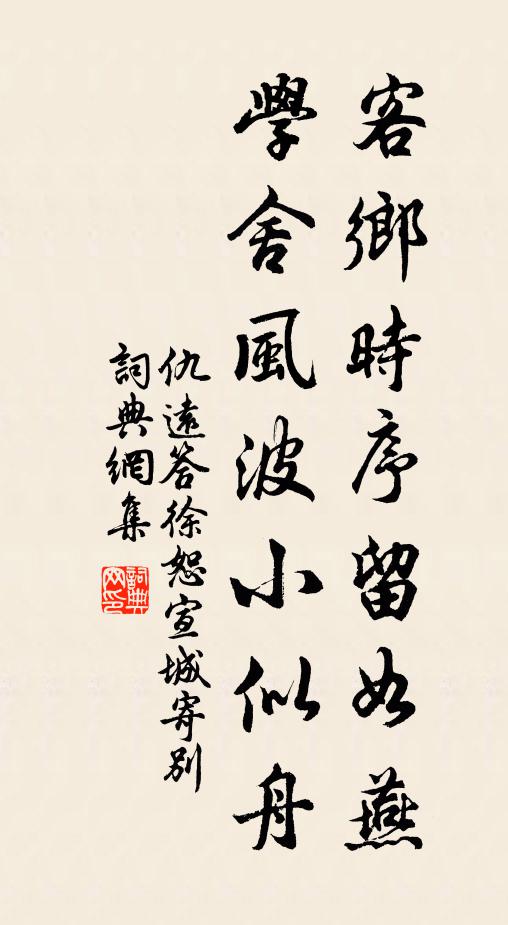 客鄉時序留如燕
學舍風波小似舟
仇遠答徐恕宣城寄別
詞典網集
詞典